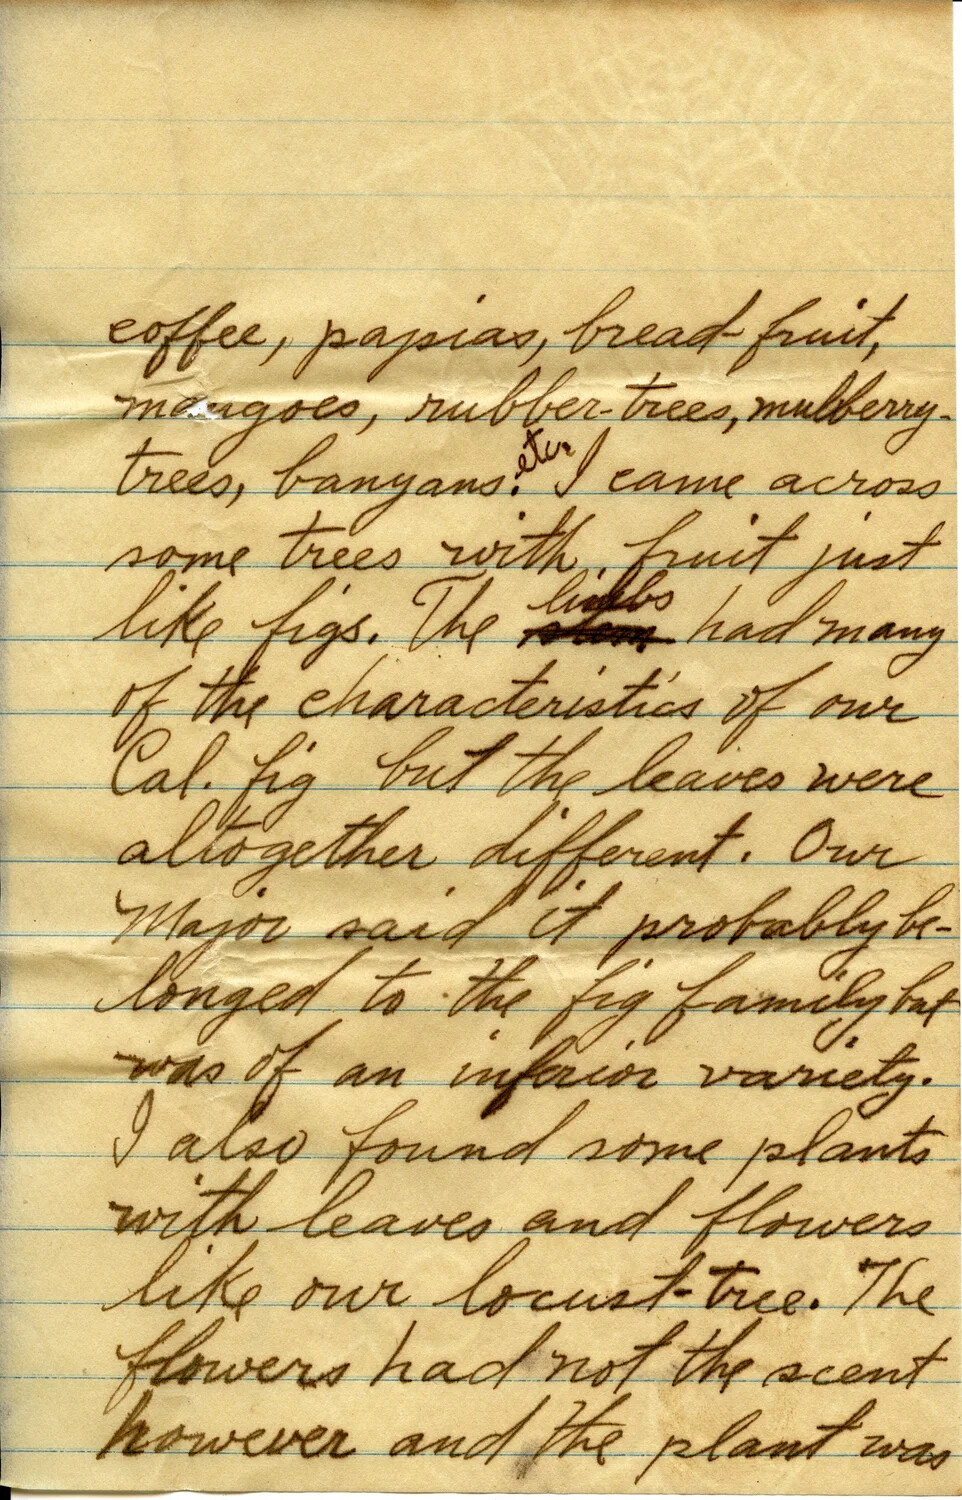 coffee, papias, bread-fruit,
mangoes, rubber-trees, mulberry-
trees, banyans. etc. I came across
some trees with fruit just
like figs. The limbs had many
of the characteristics of our
Cal. fig but the leaves were
altogether different. Our
Major said it probably be-
longed to the fig family but
was of an inferior variety.
I also found some plants
with leaves and flowers
like our locust-tree. The
flowers had not the scent
however and the plant was